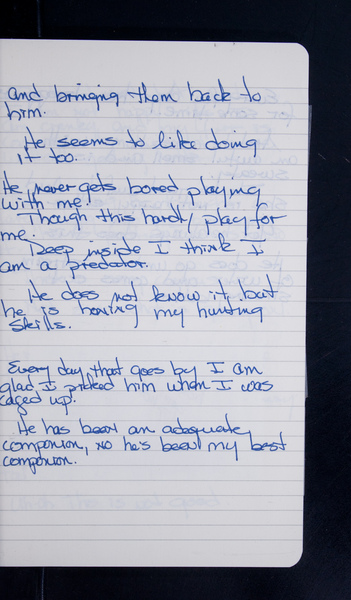 and bringing them back to
him.
He seems to like doing
it too.
He never gets bored playing
with me!
Though this hardly play for
me.
Deep inside I think I
am a predator.
He does not know it, but
he is honing my hunting
skills.
Every day that goes by I am
glad I picked him when I was
caged up.
He has been an adequate
companion, no he's been my best
companion.